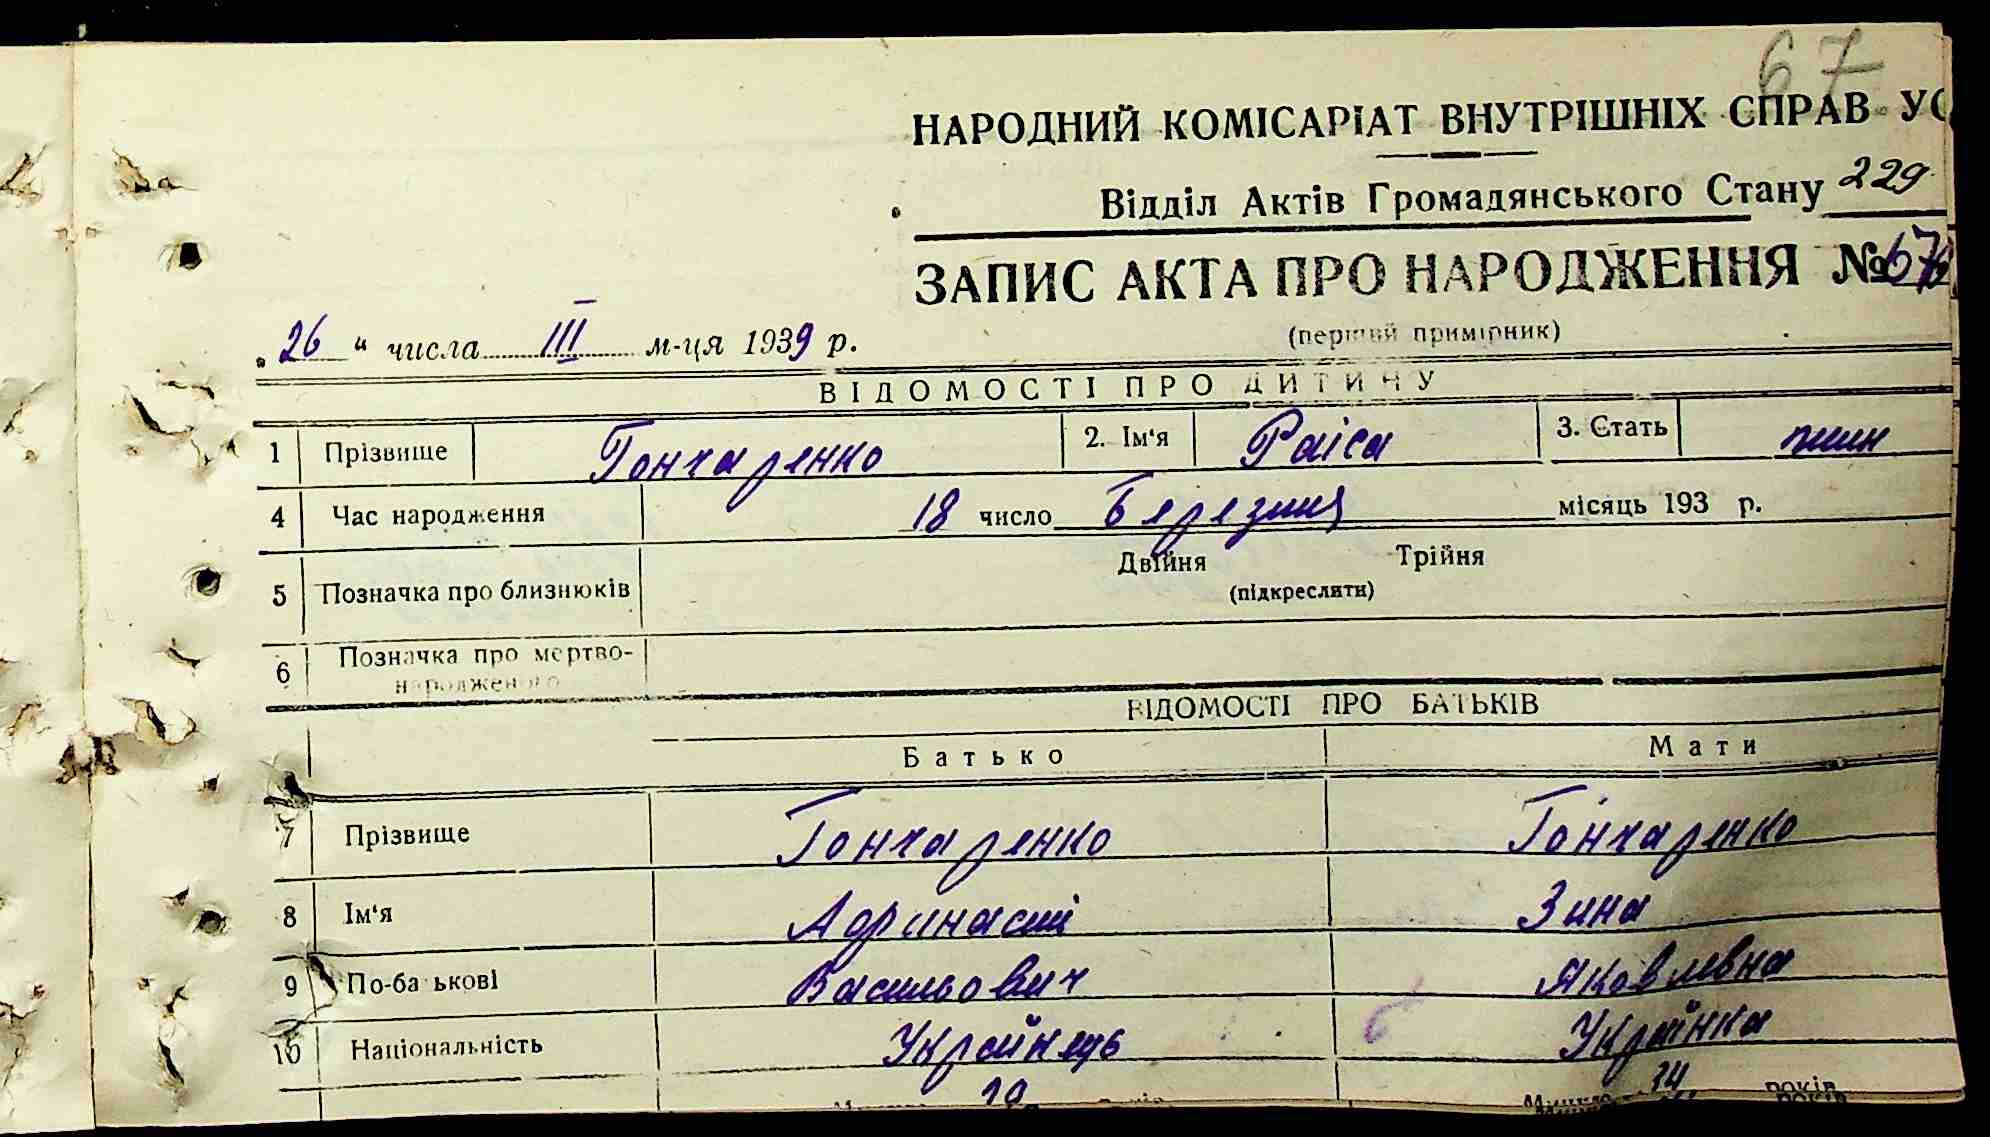 67
НАРОДНИЙ КОМІСАРІАТ ВНУТРІШНІХ СПРАВ УС
Відділ Актів Громадянського Стану 229
ЗАПИС АКТА ПРО НАРОДЖЕННЯ №67
„26“ числа III м-ця 1939 р.
(перший примірник)
ВІДОМОСТІ ПРО ДИТИНУ
1 Прізвище Гончаренко 2. Ім'я Раіса 3. Стать жин
4 Час народження 18 число Березня місяць 193 р.
5 Позначка про близнюків Двійня Трійня
(підкреслити)
6 Позначка про мертво-
народженого
ВІДОМОСТІ ПРО БАТЬКІВ
Батько Мати
7 Прізвище Гончаренко Гончаренко
8 Ім'я Зина
9 По-ба ькові Васильович Яковлевна
10 Національність Українець Українка
34 років